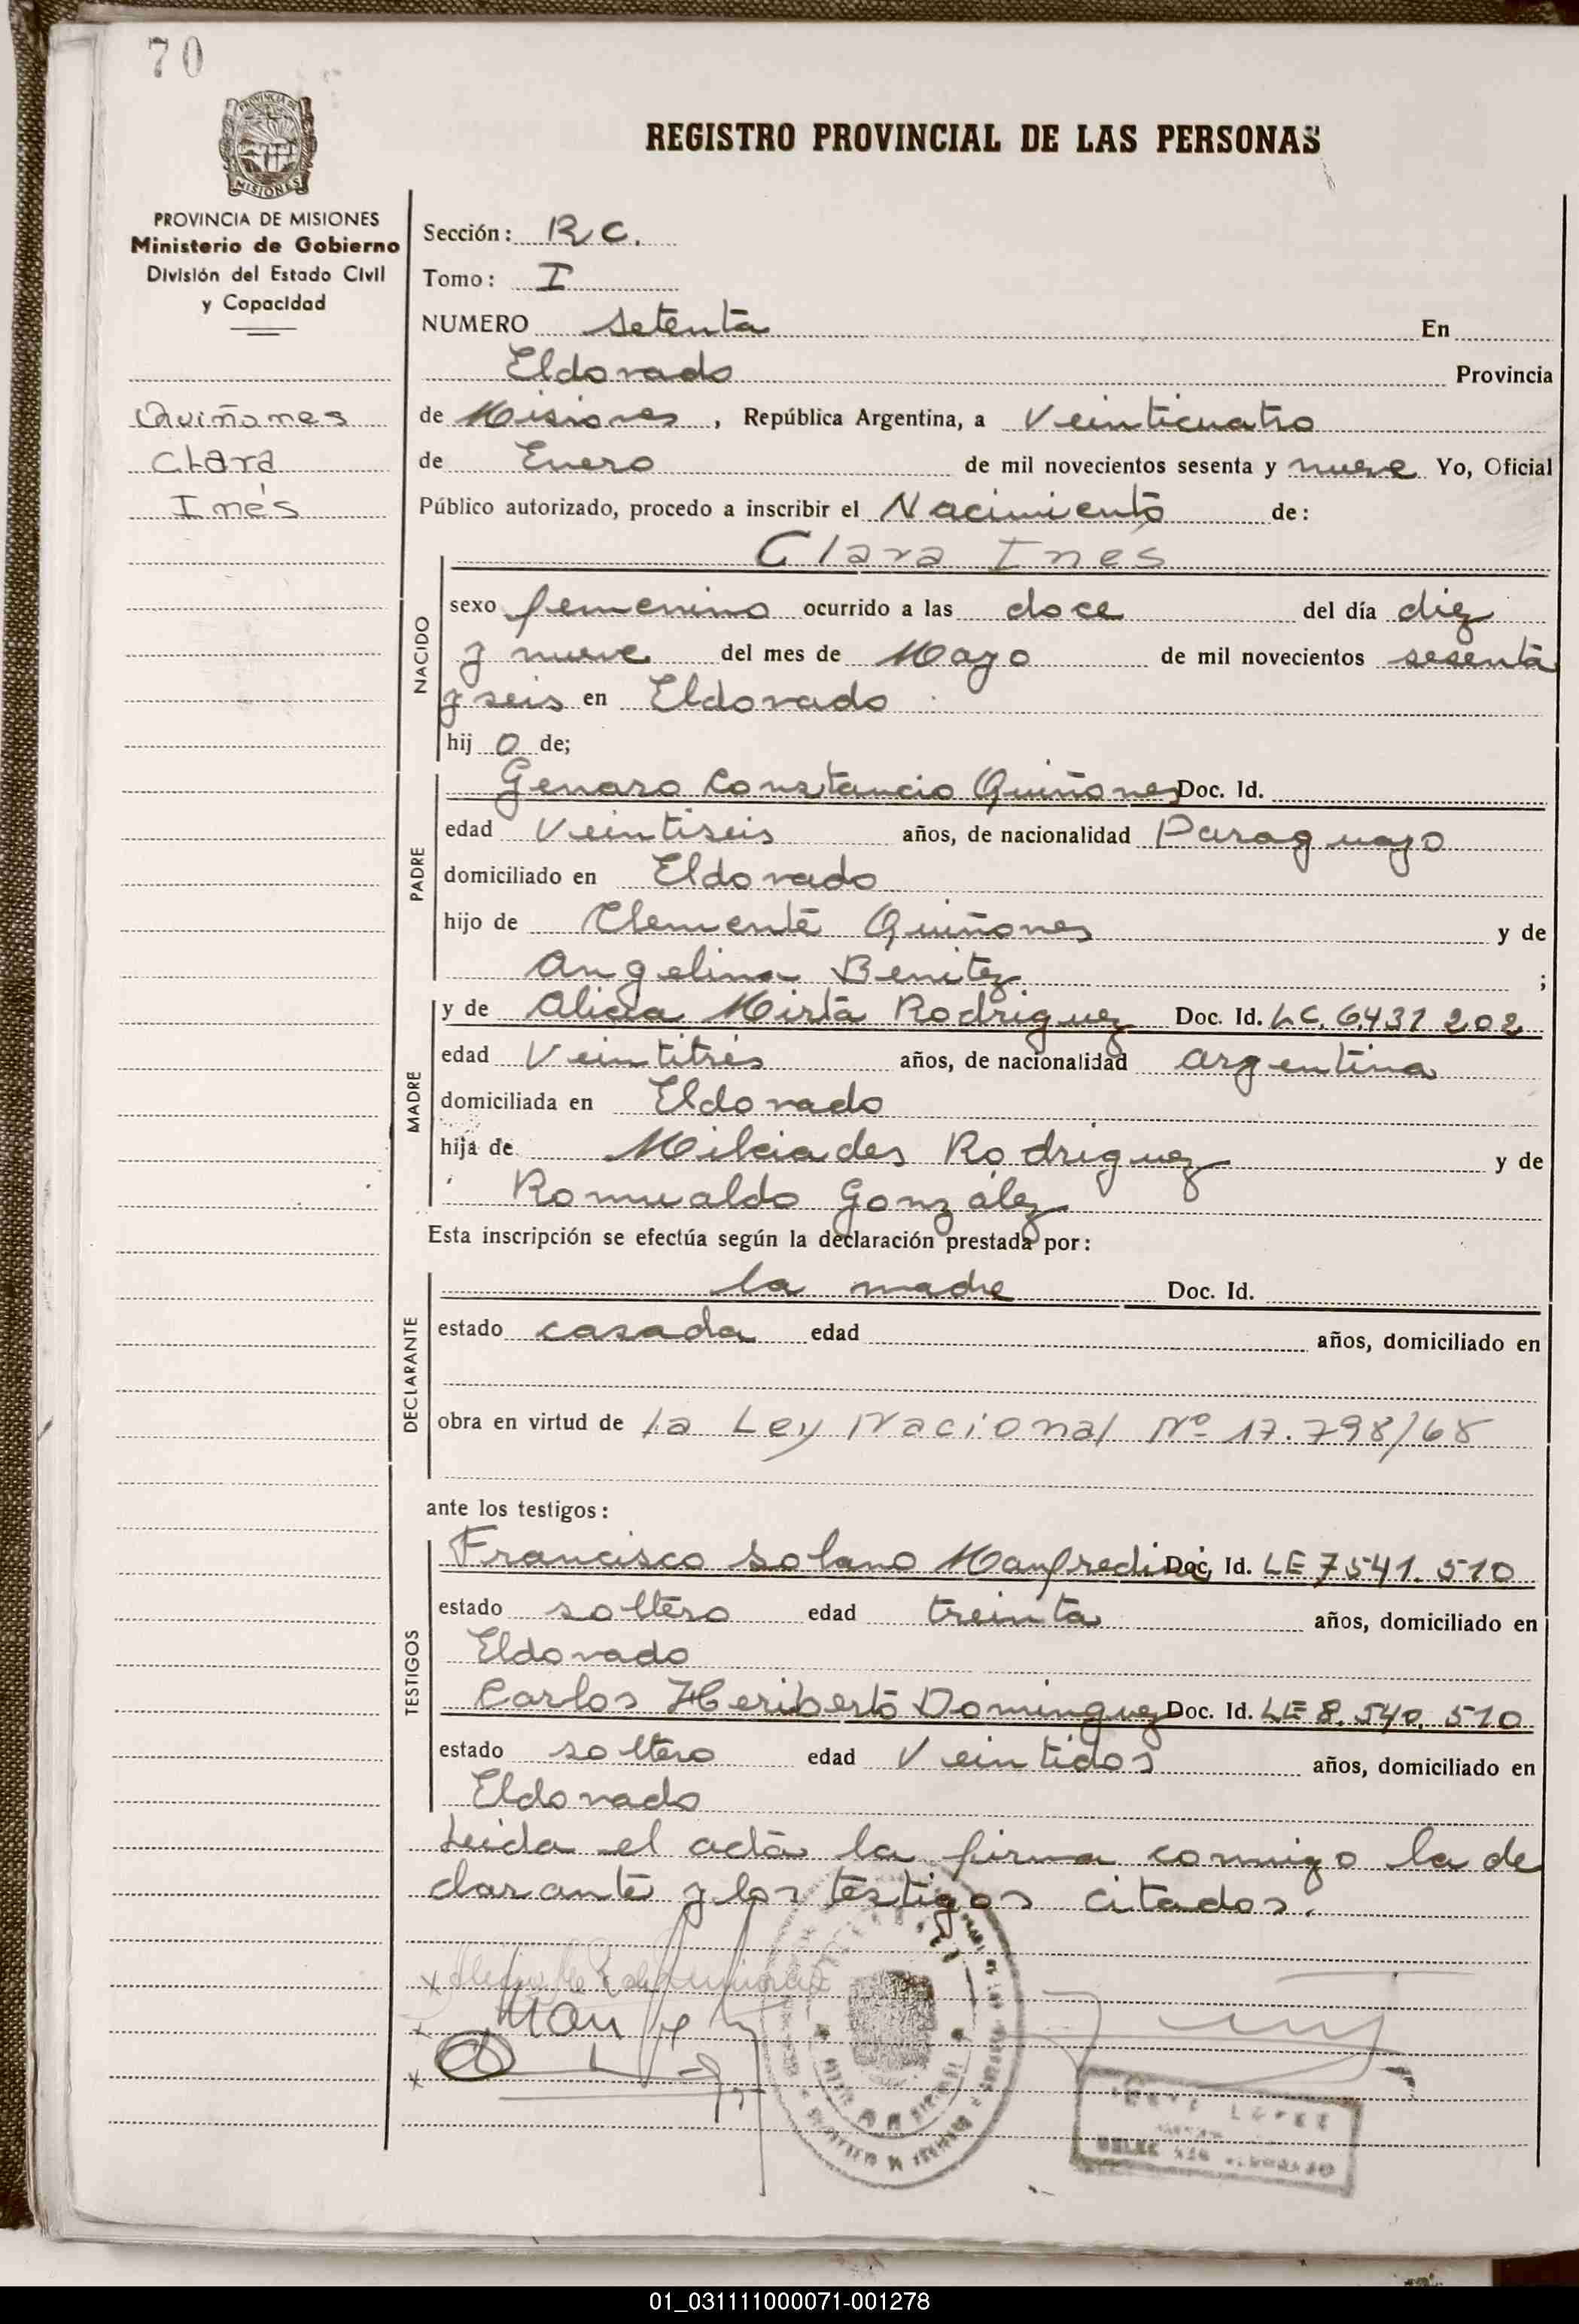 70
PROVINCIA DE
MISIONES
REGISTRO PROVINCIAL DE LAS PERSONAS
PROVINCIA DE MISIONES
Ministerio de Gobierno
División del Estado Civil
y Capacidad
Quiñones
Clara
Inés
Sección: R C.
Tomo: I
NUMERO setenta En
Eldorado Provincia
de Misiones, República Argentina, a Veinticuatro
de Enero de mil novecientos sesenta y nueve Yo, Oficial
Público autorizado, procedo a inscribir el Nacimiento de:
Clara Inés
NACIDO
sexo femenino ocurrido a las doce del día diez
y nueve del mes de Mayo de mil novecientos sesenta
y seis en Eldorado
hij o de;
PADRE
Genaro Constancio Quiñones Doc. Id.
edad Veintiseis años, de nacionalidad Paraguayo
domiciliado en Eldorado
hijo de Clemente Quiñones y de
Angelina Benitez ;
MADRE
y de Alicia Mirta Rodriguez Doc. Id. LC. 6431 202
edad Veintitrés años, de nacionalidad argentina
domiciliada en Eldorado
hija de Milciades Rodriguez y de
Romualdo González
Esta inscripción se efectúa según la declaración prestada por:
DECLARANTE
la madre Doc. Id.
estado casada edad años, domiciliado en
obra en virtud de la Ley Nacional Nº 17.798/68
ante los testigos:
TESTIGOS
Francisco Solano Manfredini Doc. Id. LE 7541. 510
estado soltero edad treinta años, domiciliado en
Eldorado
Carlos Heriberto Dominguez Doc. Id. LE 8. 540. 510
estado soltero edad Veintidos años, domiciliado en
Eldorado
Leida el acta la firma conmigo la de
clarante y los testigos citados.
01_031111000071-001278